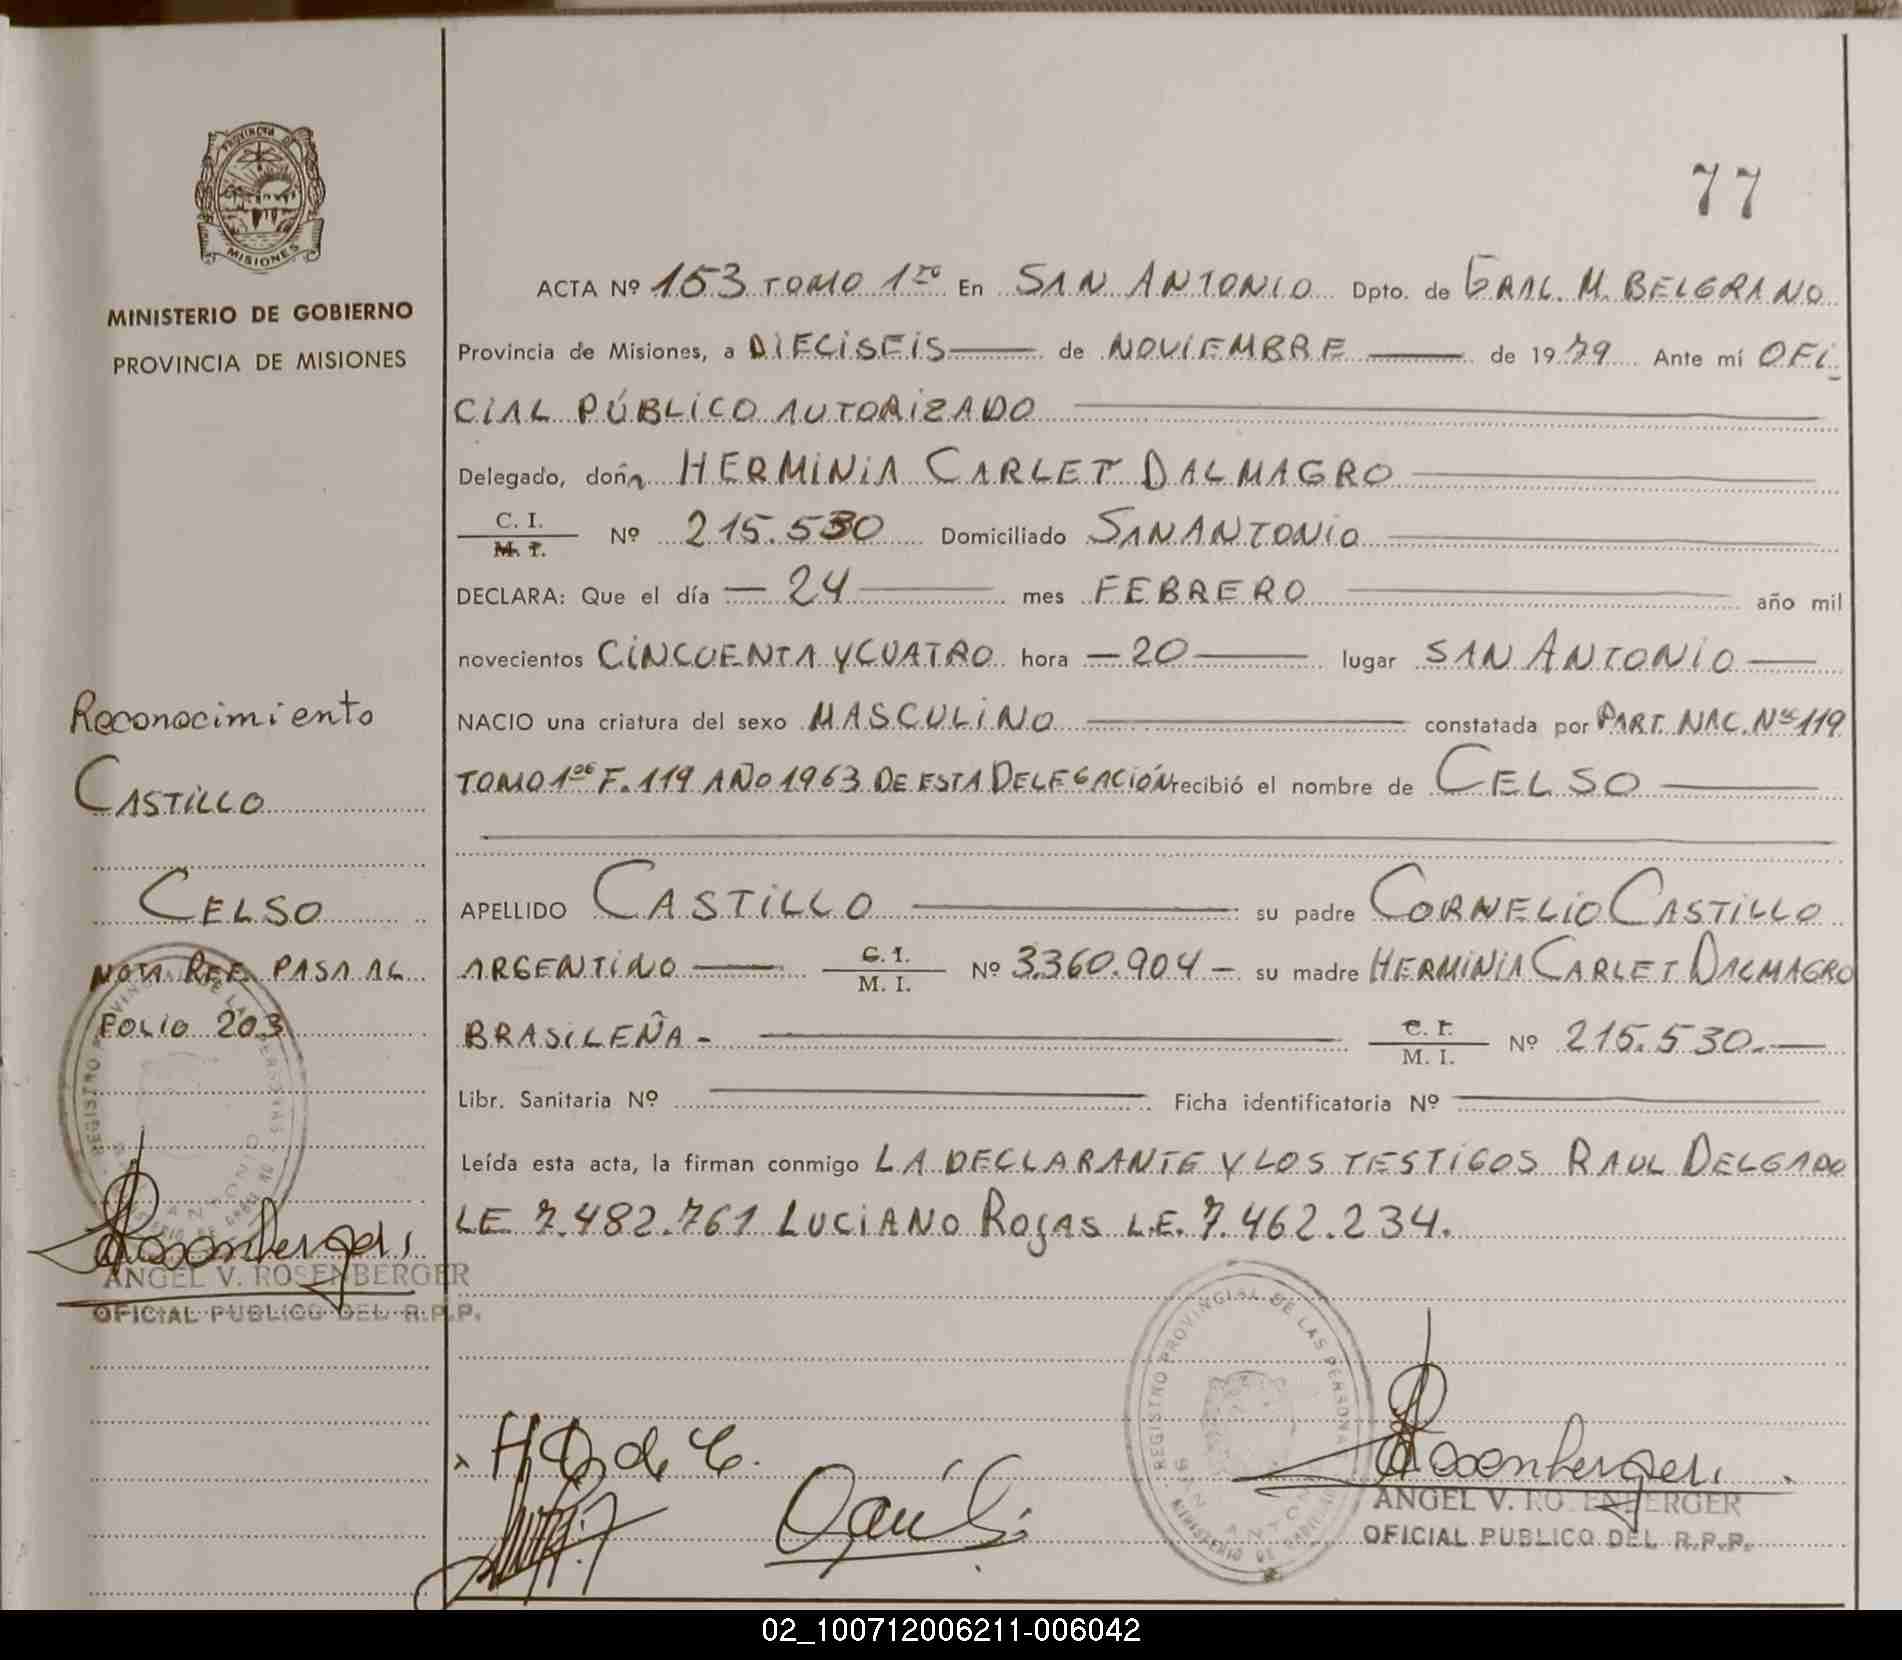 PROVINCIA DE
MISIONES
MINISTERIO DE GOBIERNO
PROVINCIA DE MISIONES
77
ACTA Nº 153 TOMO 1ro En SAN ANTONIO Dpto. de GRAL. M. BELGRANO
Provincia de Misiones, a DIECISEIS de NOVIEMBRE de 1979 Ante mí OFI-
CIAL PÚBLICO AUTORIZADO
Delegado, doña HERMINIA CARLET DALMAGRO
C. I.
M. I. Nº 215.530 Domiciliado SAN ANTONIO
DECLARA: Que el día — 24 mes FEBRERO año mil
novecientos CINCUENTA Y CUATRO hora — 20 lugar SAN ANTONIO
NACIO una criatura del sexo MASCULINO constatada por PART. NAC. Nº 119
TOMO 1º F. 119 AÑO 1963 DE ESTA DELEGACIÓN recibió el nombre de CELSO
APELLIDO CASTILLO su padre CORNELIO CASTILLO
ARGENTINO C. I.
M. I. Nº 3.360.904 — su madre HERMINIA CARLET DALMAGRO
BRASILEÑA - C. I.
M. I. Nº 215.530.—
Libr. Sanitaria Nº Ficha identificatoria Nº
Leída esta acta, la firman conmigo LA DECLARANTE Y LOS TESTIGOS RAUL DELGADO
LE 7.482.761 LUCIANO ROJAS L.E. 7.462.234.
Reconocimiento
CASTILLO
CELSO
NOTA REF. PASA AL
FOLIO 203
REGISTRO PROVINCIAL DE LAS PERSONAS
Rosenberger
ANGEL V. ROSENBERGER
OFICIAL PUBLICO DEL R.P.P.
H. D. de C.
REGISTRO PROVINCIAL DE LAS PERSONAS
SAN ANTONIO
MINISTERIO DE GOBIERNO
Rosenberger
ANGEL V. ROSENBERGER
OFICIAL PUBLICO DEL R.P.P.
02_100712006211-006042